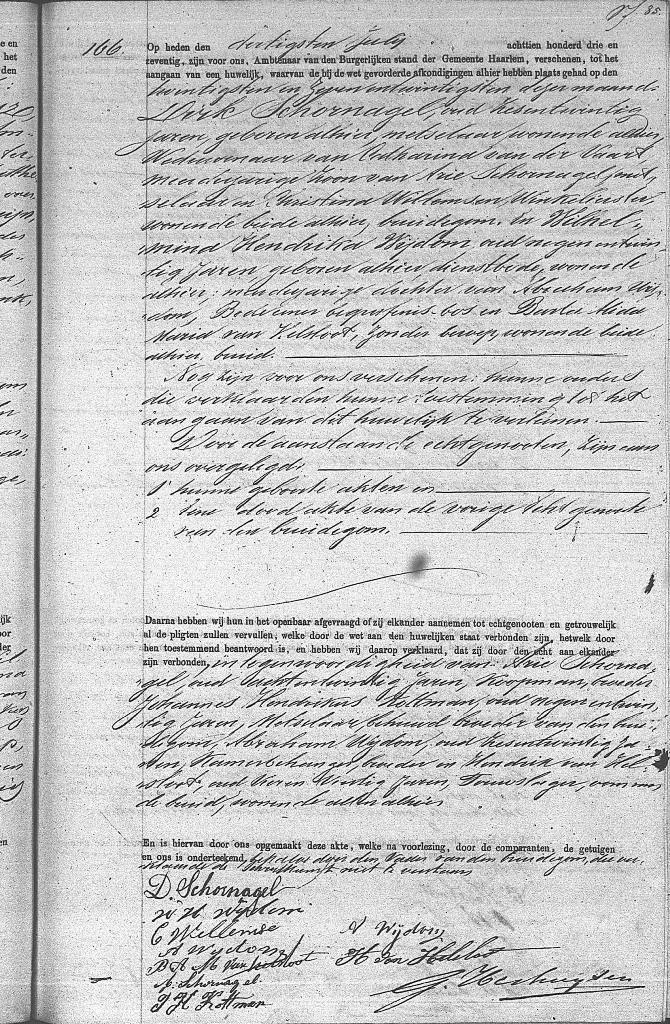 85.
166.
Op heden den dertigsten July achttien honderd drie en
zeventig, zijn voor ons, Ambtenaar van den Burgerlijken stand der Gemeente Haarlem, verschenen, tot het
aangaan van een huwelijk, waarvan de bij de wet gevorderde afkondigingen alhier hebben plaats gehad op den
twintigsten en Zevenentwintigsten dezer maand.
Dirk Schornagel, oud Zesentwintig
Jaren, geboren alhier, metselaar, wonende alhier,
Weduwenaar van Catharina van der Vaart
meerderjarige Zoon van Arie Schornagel, met-
selaar en Christina Willemsen, Winkelierster,
wonende beide alhier, bruidegom. En Wilhel-
mina Hendrika Wijdom oud negenentwin-
tig Jaren, geboren alhier, dienstbode, wonende
alhier: meerderjarige dochter van Abraham Wij-
dom, Bediener begrafenis bos en Alida
Maria van Helsloot, zonder beroep, wonende beide
alhier, bruid.
Nog zijn voor ons verschenen: hunne ouders
die verklaarden hunne toestemming tot het
aangaan van dit huwelijk te verleenen.
Door de aanstaande echtgenooten, zijn aan
ons overgelegd:
1 hunne geboorte akten en
2 Eene dood akte van de vorige Echtgenoote
van den bruidegom.
Daarna hebben wij hun in het openbaar afgevraagd of zij elkander aannemen tot echtgenooten en getrouwelijk
al de pligten zullen vervullen, welke door de wet aan den huwelijken staat verbonden zijn, hetwelk door
hen toestemmend beantwoord is, en hebben wij daarop verklaard, dat zij door den echt aan elkander
zijn verbonden, in tegenwoordigheid van: Arie Schorna-
gel, oud Achtentwintig Jaren, Koopman, broeder
Johannes Hendrikus Kottman, oud negenentwin-
tig Jaren, Metselaar, behuwd broeder van den brui-
degom, Abraham Wijdom, oud Zesentwintig Ja-
ren, Kamerbehanger, broeder en Hendrik van Hel-
sloot, oud Vier en Veertig Jaren, Touwslager, oom van
de bruid, wonende allen alhier
En is hiervan door ons opgemaakt deze akte, welke na voorlezing, door de comparanten, de getuigen
en ons is onderteekend, behalve door den Vader van den bruidegom, die ver-
klaarde de Schrijfkunst niet te verstaan
D. Schornagel
W H Wijdom
C Willemse
A Wydom
B A M van Helsloot
A. Schornagel.
J H Kottman
A Wijdom
H van Helsloot